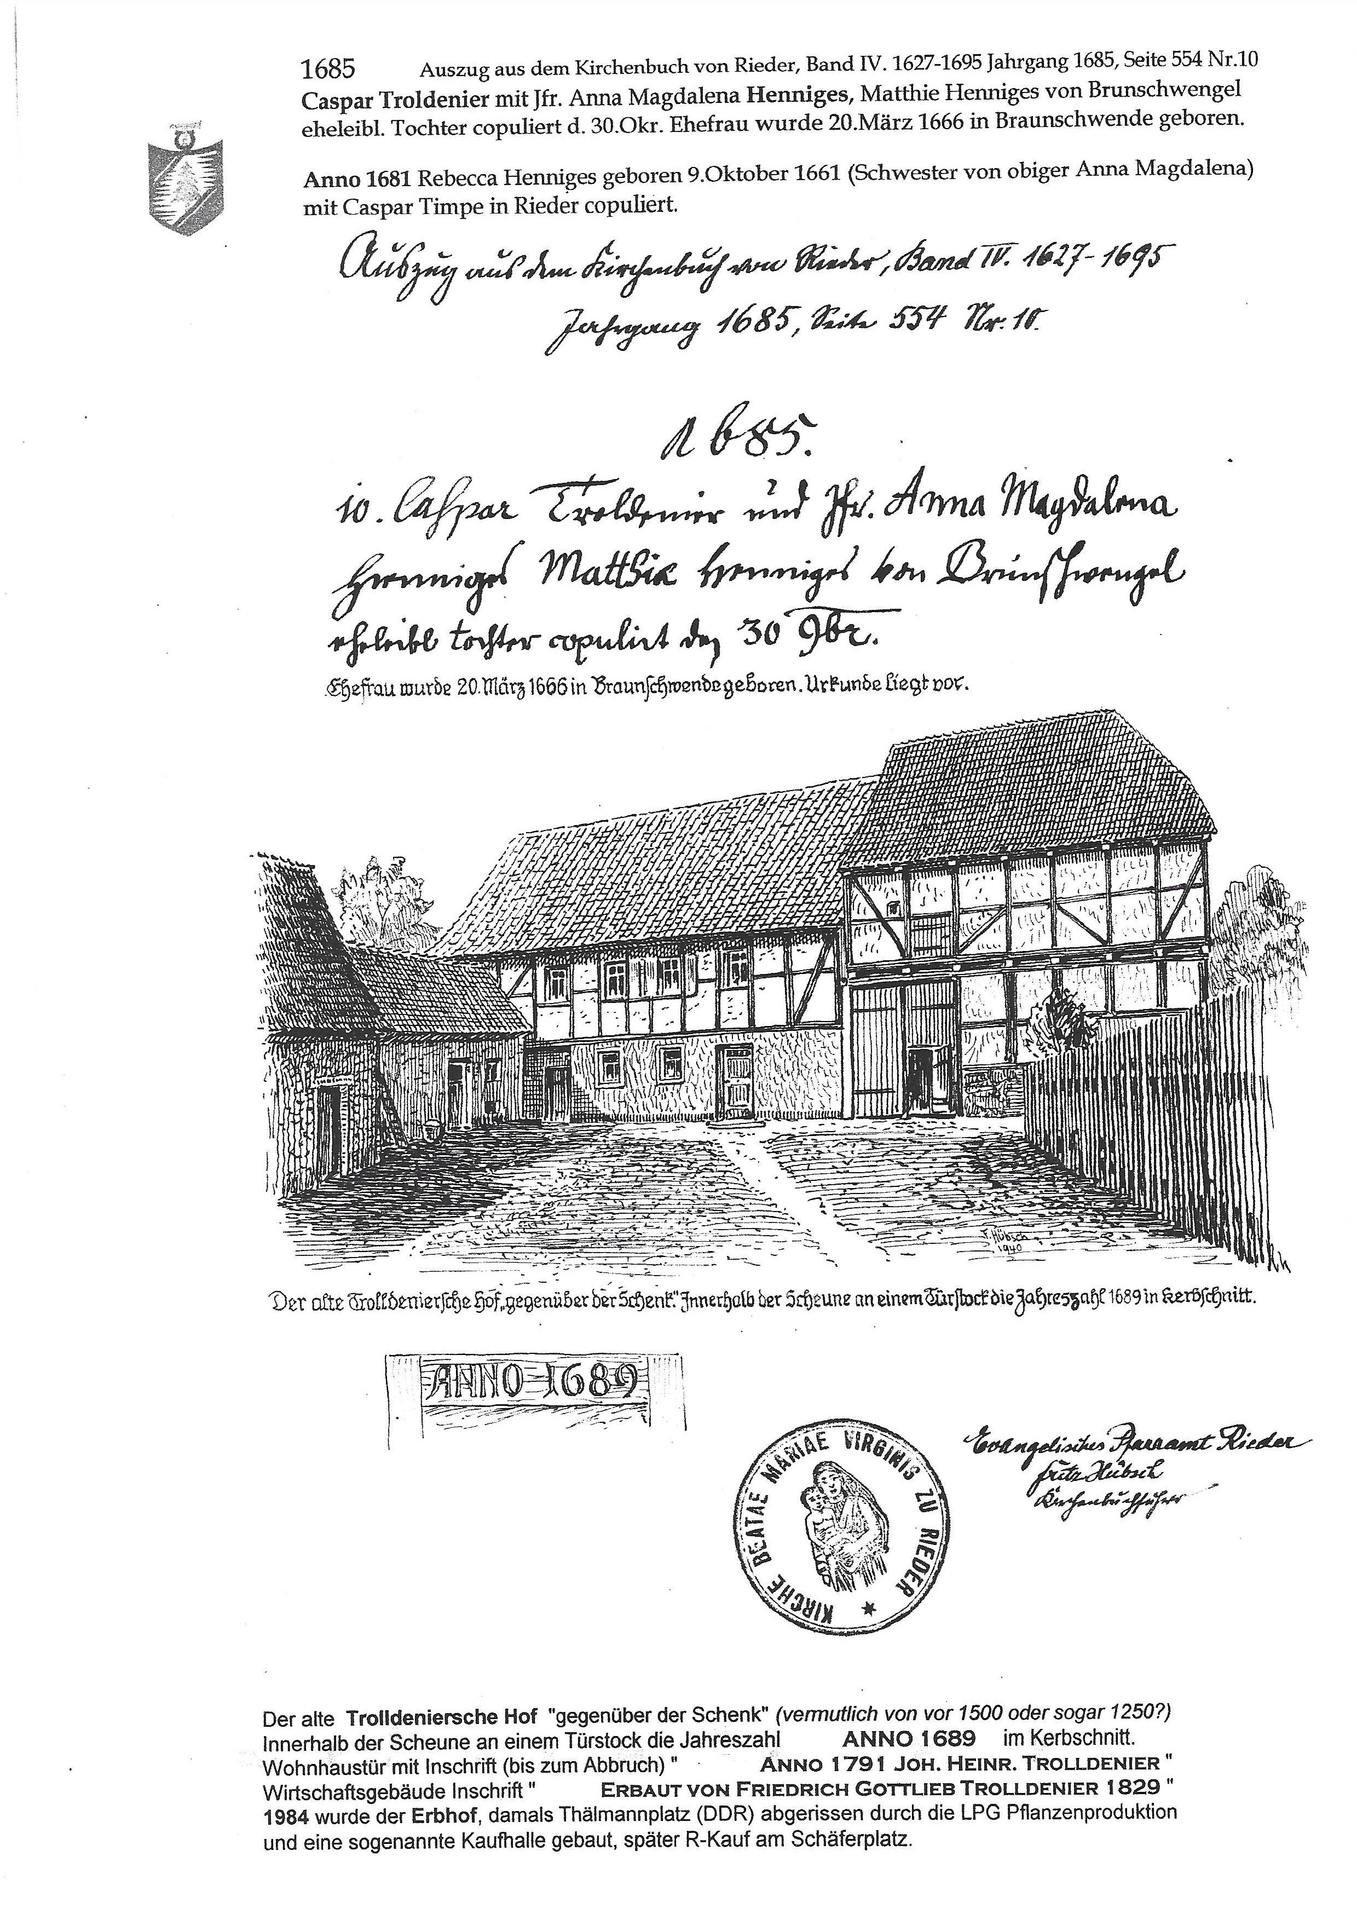 1685 Auszug aus dem Kirchenbuch von Rieder, Band IV. 1627-1695 Jahrgang 1685, Seite 554 Nr.10
Caspar Troldenier mit Jfr. Anna Magdalena Henniges, Matthie Henniges von Brunschwengel
eheleibl. Tochter copuliert d. 30.Okr. Ehefrau wurde 20.März 1666 in Braunschwende geboren.
Anno 1681 Rebecca Henniges geboren 9.Oktober 1661 (Schwester von obiger Anna Magdalena)
mit Caspar Timpe in Rieder copuliert.
Auszug aus dem Kirchenbuch von Rieder, Band IV. 1627-1695
Jahrgang 1685, Seite 554 Nr. 10.
1685.
10. Caspar Troldenier und Jfr. Anna Magdalena
Henniges Matthie Henniges von Brunschwengel
eheleibl tochter copulirt den 30 9br.
Ehefrau wurde 20. März 1666 in Braunschwende geboren. Urkunde liegt vor.
F. Hübsch
1940
Der alte Trolldeniersche Hof „gegenüber der Schenk." Innerhalb der Scheune an einem Türstock die Jahreszahl 1689 in Kerbschnitt.
ANNO 1689
KIRCHE BEATAE MARIAE VIRGINIS ZU RIEDER
Evangelisches Pfarramt Rieder
Fritz Hübsch
Kirchenbuchführer
Der alte Trolldeniersche Hof "gegenüber der Schenk" (vermutlich von vor 1500 oder sogar 1250?)
Innerhalb der Scheune an einem Türstock die Jahreszahl ANNO 1689 im Kerbschnitt.
Wohnhaustür mit Inschrift (bis zum Abbruch) " ANNO 1791 JOH. HEINR. TROLLDENIER "
Wirtschaftsgebäude Inschrift " ERBAUT VON FRIEDRICH GOTTLIEB TROLLDENIER 1829 "
1984 wurde der Erbhof, damals Thälmannplatz (DDR) abgerissen durch die LPG Pflanzenproduktion
und eine sogenannte Kaufhalle gebaut, später R-Kauf am Schäferplatz.